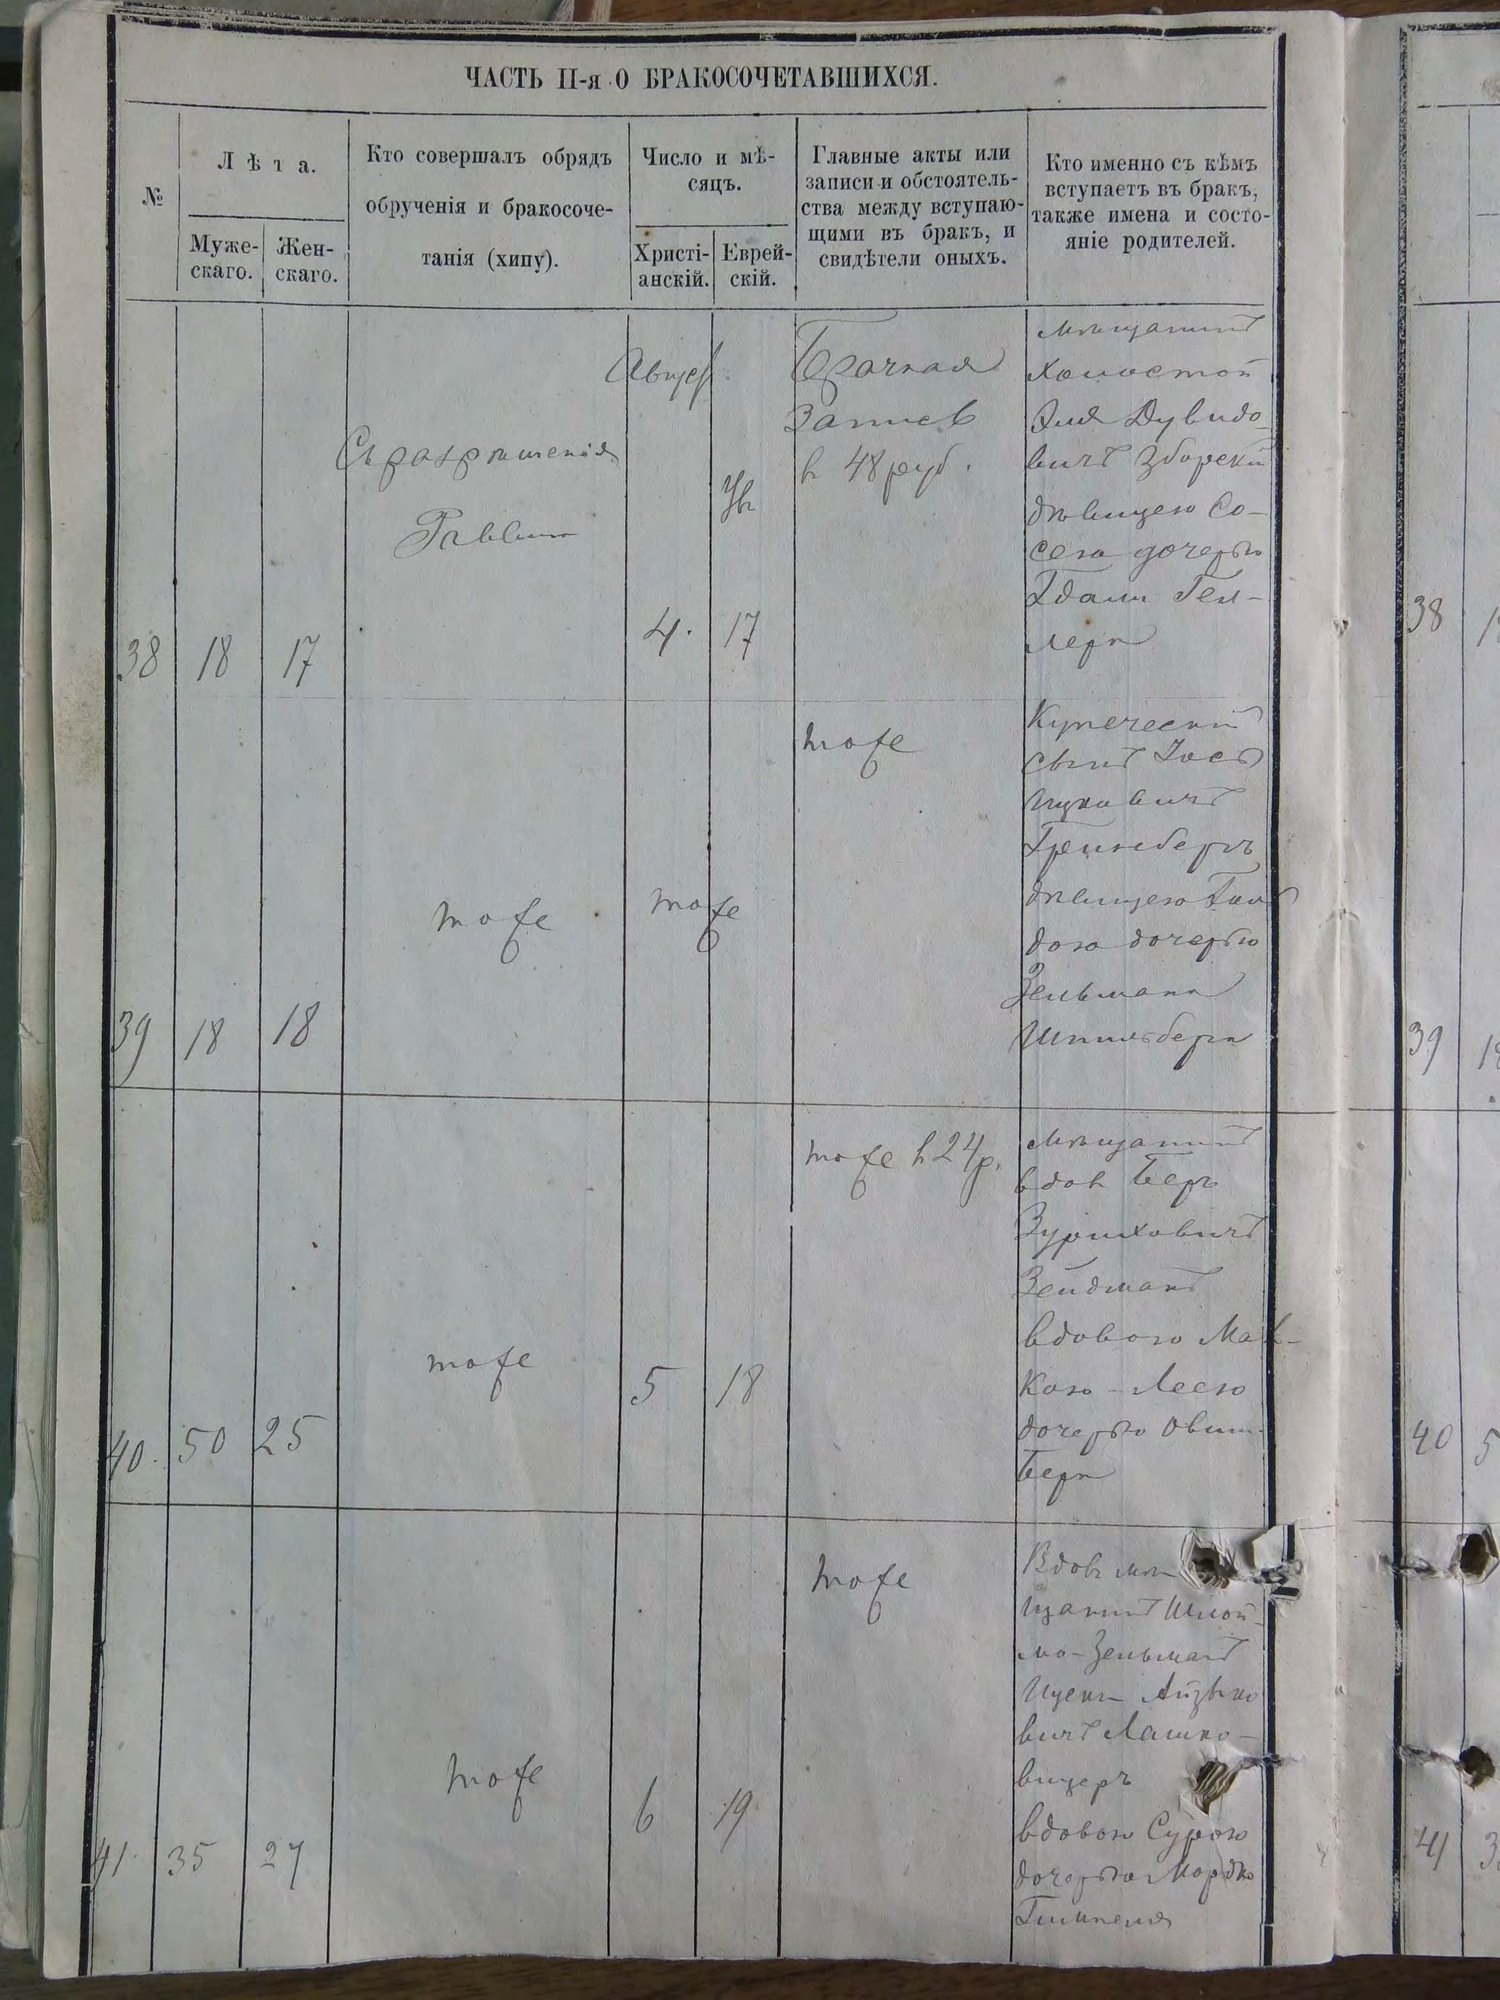 ЧАСТЬ II-я О БРАКОСОЧЕТАВШИХСЯ.
№
Лѣта.
Муже-
скаго.
Жен-
скаго.
Кто совершалъ обрядъ
обрученія и бракосоче-
танія (хипу).
Число и мѣ-
сяцъ.
Христі-
анскій.
Еврей-
скій.
Главные акты или
записи и обстоятель-
ства между вступаю-
щими въ бракъ, и
свидѣтели оныхъ.
Кто именно съ кѣмъ
вступаетъ въ бракъ,
также имена и состо-
яніе родителей.
38
18
17
Съ разрѣшенія
Раввина
Август
4.
17
Брачная
Запись
в 48 руб.
мѣщанинъ
холостой
Эля Дувидо-
вичъ Зборскій
дѣвицею Со-
сею дочерью
39
18
18
тоже
тоже
тоже
Купеческій
сынъ Іосъ
Ицковичъ
Гринбергъ
дѣвицею Гол
дою дочерью
Зельмана
Шпильберга
40.
50
25
тоже
5
18
тоже в 24 р.
мѣщанинъ
вдов Беръ
Зуриховичъ
Зейдманъ
вдовою Мал-
кою-Леею
дочерью
41
35
27
тоже
6
19
тоже
Вдовъ мѣ
щанинъ Шлой-
ма-Зельманъ
Ицекъ Айзико
вичъ Лашко-
вицеръ
вдовою Сурою
дочерью Мордко
Гимпеля
38
39
40
41